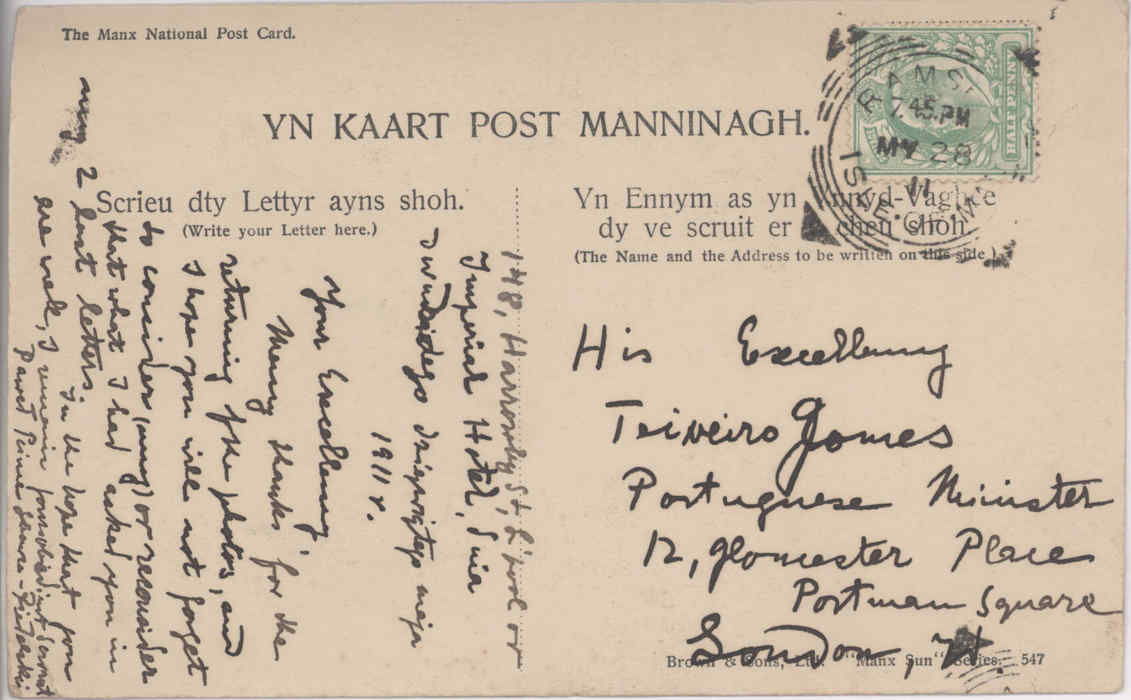 The Manx National Post Card.
YN KAART POST MANNINAGH.
Scrieu dty Lettyr ayns shoh.
(Write your Letter here.)
Yn Ennym as yn
dy ve scruit er cheu shoh.
(The Name and the Address to be written on this side.)
HALFPENNY
RAMS
7.45.PM
MY 28
11
ISLE.OF.MAN
148, Harrowby St, L'pool or
Imperial Hotel, dnia
dwudziestego
1911 r.
Your Excellency,
Many thanks for the
returning of the photos, and
I hope you will not forget
to consider (any) or reconsider
that what I had asked you in
my 2 last letters.
In the hope that you
are well, I remain
His Excellency
Teixeira Gomes
Portuguese Minister
12, Gloucester Place
Portman Square
London, W.
Brown & Sons, Ltd. "Manx Sun" Series. 547